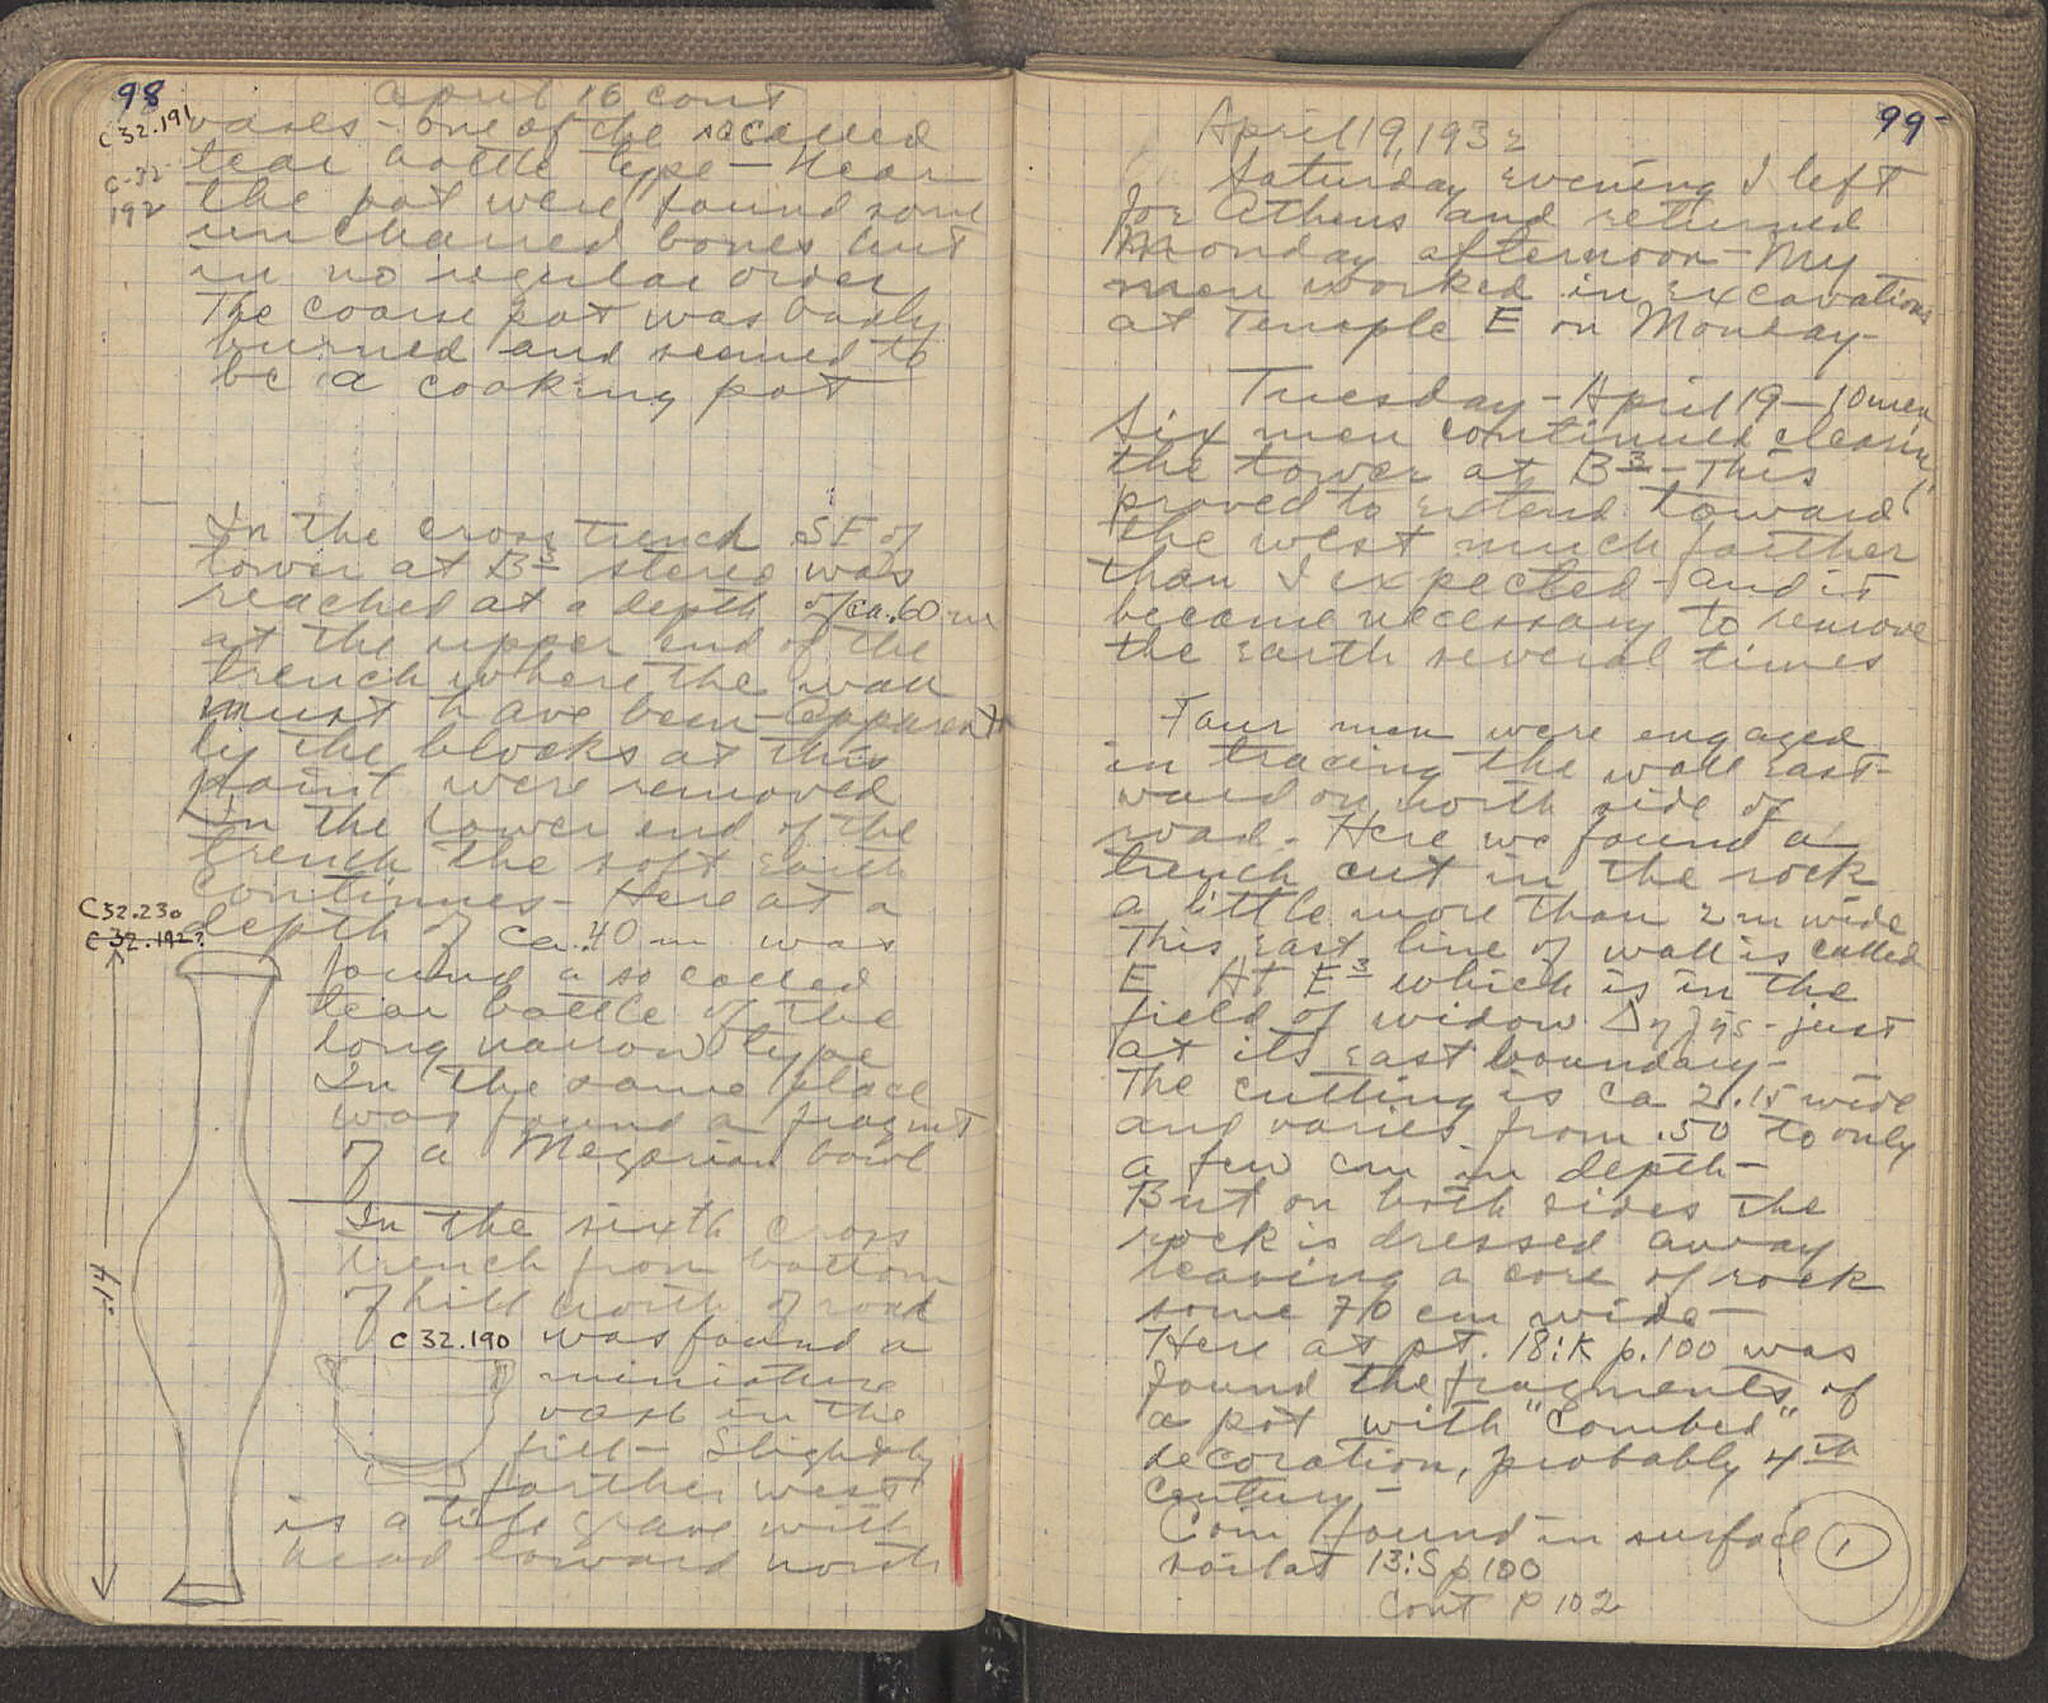 98
April 16 cont
C 32.191
vases - one of the so called
tear bottle type - Near
C-32-
192
the pot were found some
uncharred bones but
in no regular order
The coarse pot was badly
burned and seemed to
be a cooking pot
In the cross trench SE of
tower at B3 stereo was
reached at a depth of ca .60 m
at the upper end of the
trench where the wall
must have been - Apparent
ly the blocks at this
point were removed
In the lower end of the
trench the soft earth
continues - Here at a
C32.230
C 32.192?
depth of ca .40 m was
found a so called
tear bottle of the
long narrow type
In the same place
was found a fragmt
of a Megarian bowl
.14
In the sixth cross
trench from bottom
of hill north of road
C 32.190
was found a
miniature
vase in the
fill - Slightly
farther west
is a tile grave with
head toward north
99
April 19, 1932
Saturday evening I left
for Athens and returned
Monday afternoon - My
men worked in excavations
at Temple E on Monday -
Tuesday - April 19 - 10 men
Six men continued clearing
the tower at B3 - This
proved to extend toward
the west much farther
than I expected - and it
became necessary to remove
the earth several times
Four men were engaged
in tracing the wall east-
ward on north side of
road - Here we found a
trench cut in the rock
a little more than 2 m wide
This east line of wall is called
E At E3 which is in the
field of widow - just
at its east boundary -
The cutting is ca 2.15 wide
and varies from .50 to only
a few cm in depth -
But on both sides the
rock is dressed away
leaving a core of rock
some 70 cm wide -
Here at pt. 18:K p.100 was
found the fragments of
a pot with "Combed"
decoration, probably 4th
Century -
Coin found in surface
1
soil at 13:S p 100
Cont p 102